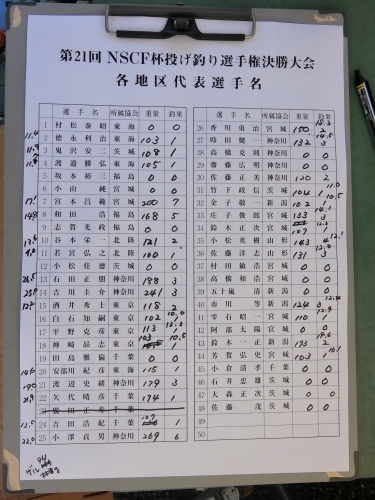 第21回 NSCF杯投げ釣り選手権決勝大会
各地区代表選手名
選手名 所属協会 重量 釣果
1 村松泰昭 東海 0 0
2 徳永利治 東海 103 1
3 鬼沢安二 茨城 108 1
4 渡邉勝弘 東海 105 1
5 坂本裕三 福島 0 0
6 小山純 宮城 0 0
7 宮本昌純 宮城 200 7
8 和田浩 福島 168 5
9 志賀光政 福島 0 0
10 谷本栄一 北陸 121 2
11 若宮弘之 北陸 100 1
12 小松佳徳 茨城 0 0
13 石田正朋 神奈川 188 3
14 吉川圭介 神奈川 241 3
15 酒井秀士 東京 118 2
16 白石知嗣 東京 102
17 平野克彦 東京 113
18 神崎昴志 東京 103
19 田島雅倫 千葉 0 0
20 安部川紀彦 東海 115 1
21 渡辺史緒 神奈川 179 3
22 矢代晴彦 千葉 174 1
23 千葉
24 吉田浩紀 千葉 107 1
25 小澤貞男 神奈川 269 6
選手名 所属協会 重量 釣果
26 香川勇治 宮城 150 2
27 時田健一 神奈川 132 3
28 高橋克則 茨城 0 0
29 齋藤広明 茨城 0 0
30 佐藤正美 神奈川 120 2
31 竹下政信 茨城 104 1
32 金子敬一 新潟 102
33 庄子俊郎 宮城 133 3
34 鈴木正次 宮城 107
35 小松英樹 山形 143 4
36 佐藤洋志 山形 131 3
37 村田敏浩 宮城 0 0
38 高橋和浩 宮城 0 0
39 五十嵐清 新潟 0 0
40 市川等 新潟 124 3
41 雫石昭一 宮城 110 1
42 阿部太陽 宮城 0 0
43 鈴木一正 新潟 173 2
44 芳賀弘史 宮城 103 1
45 小倉清孝 千葉 0 0
46 石井忠雄 茨城 0 0
47 大森正次 茨城 0 0
48 佐藤茂 茨城 0 0
49
50